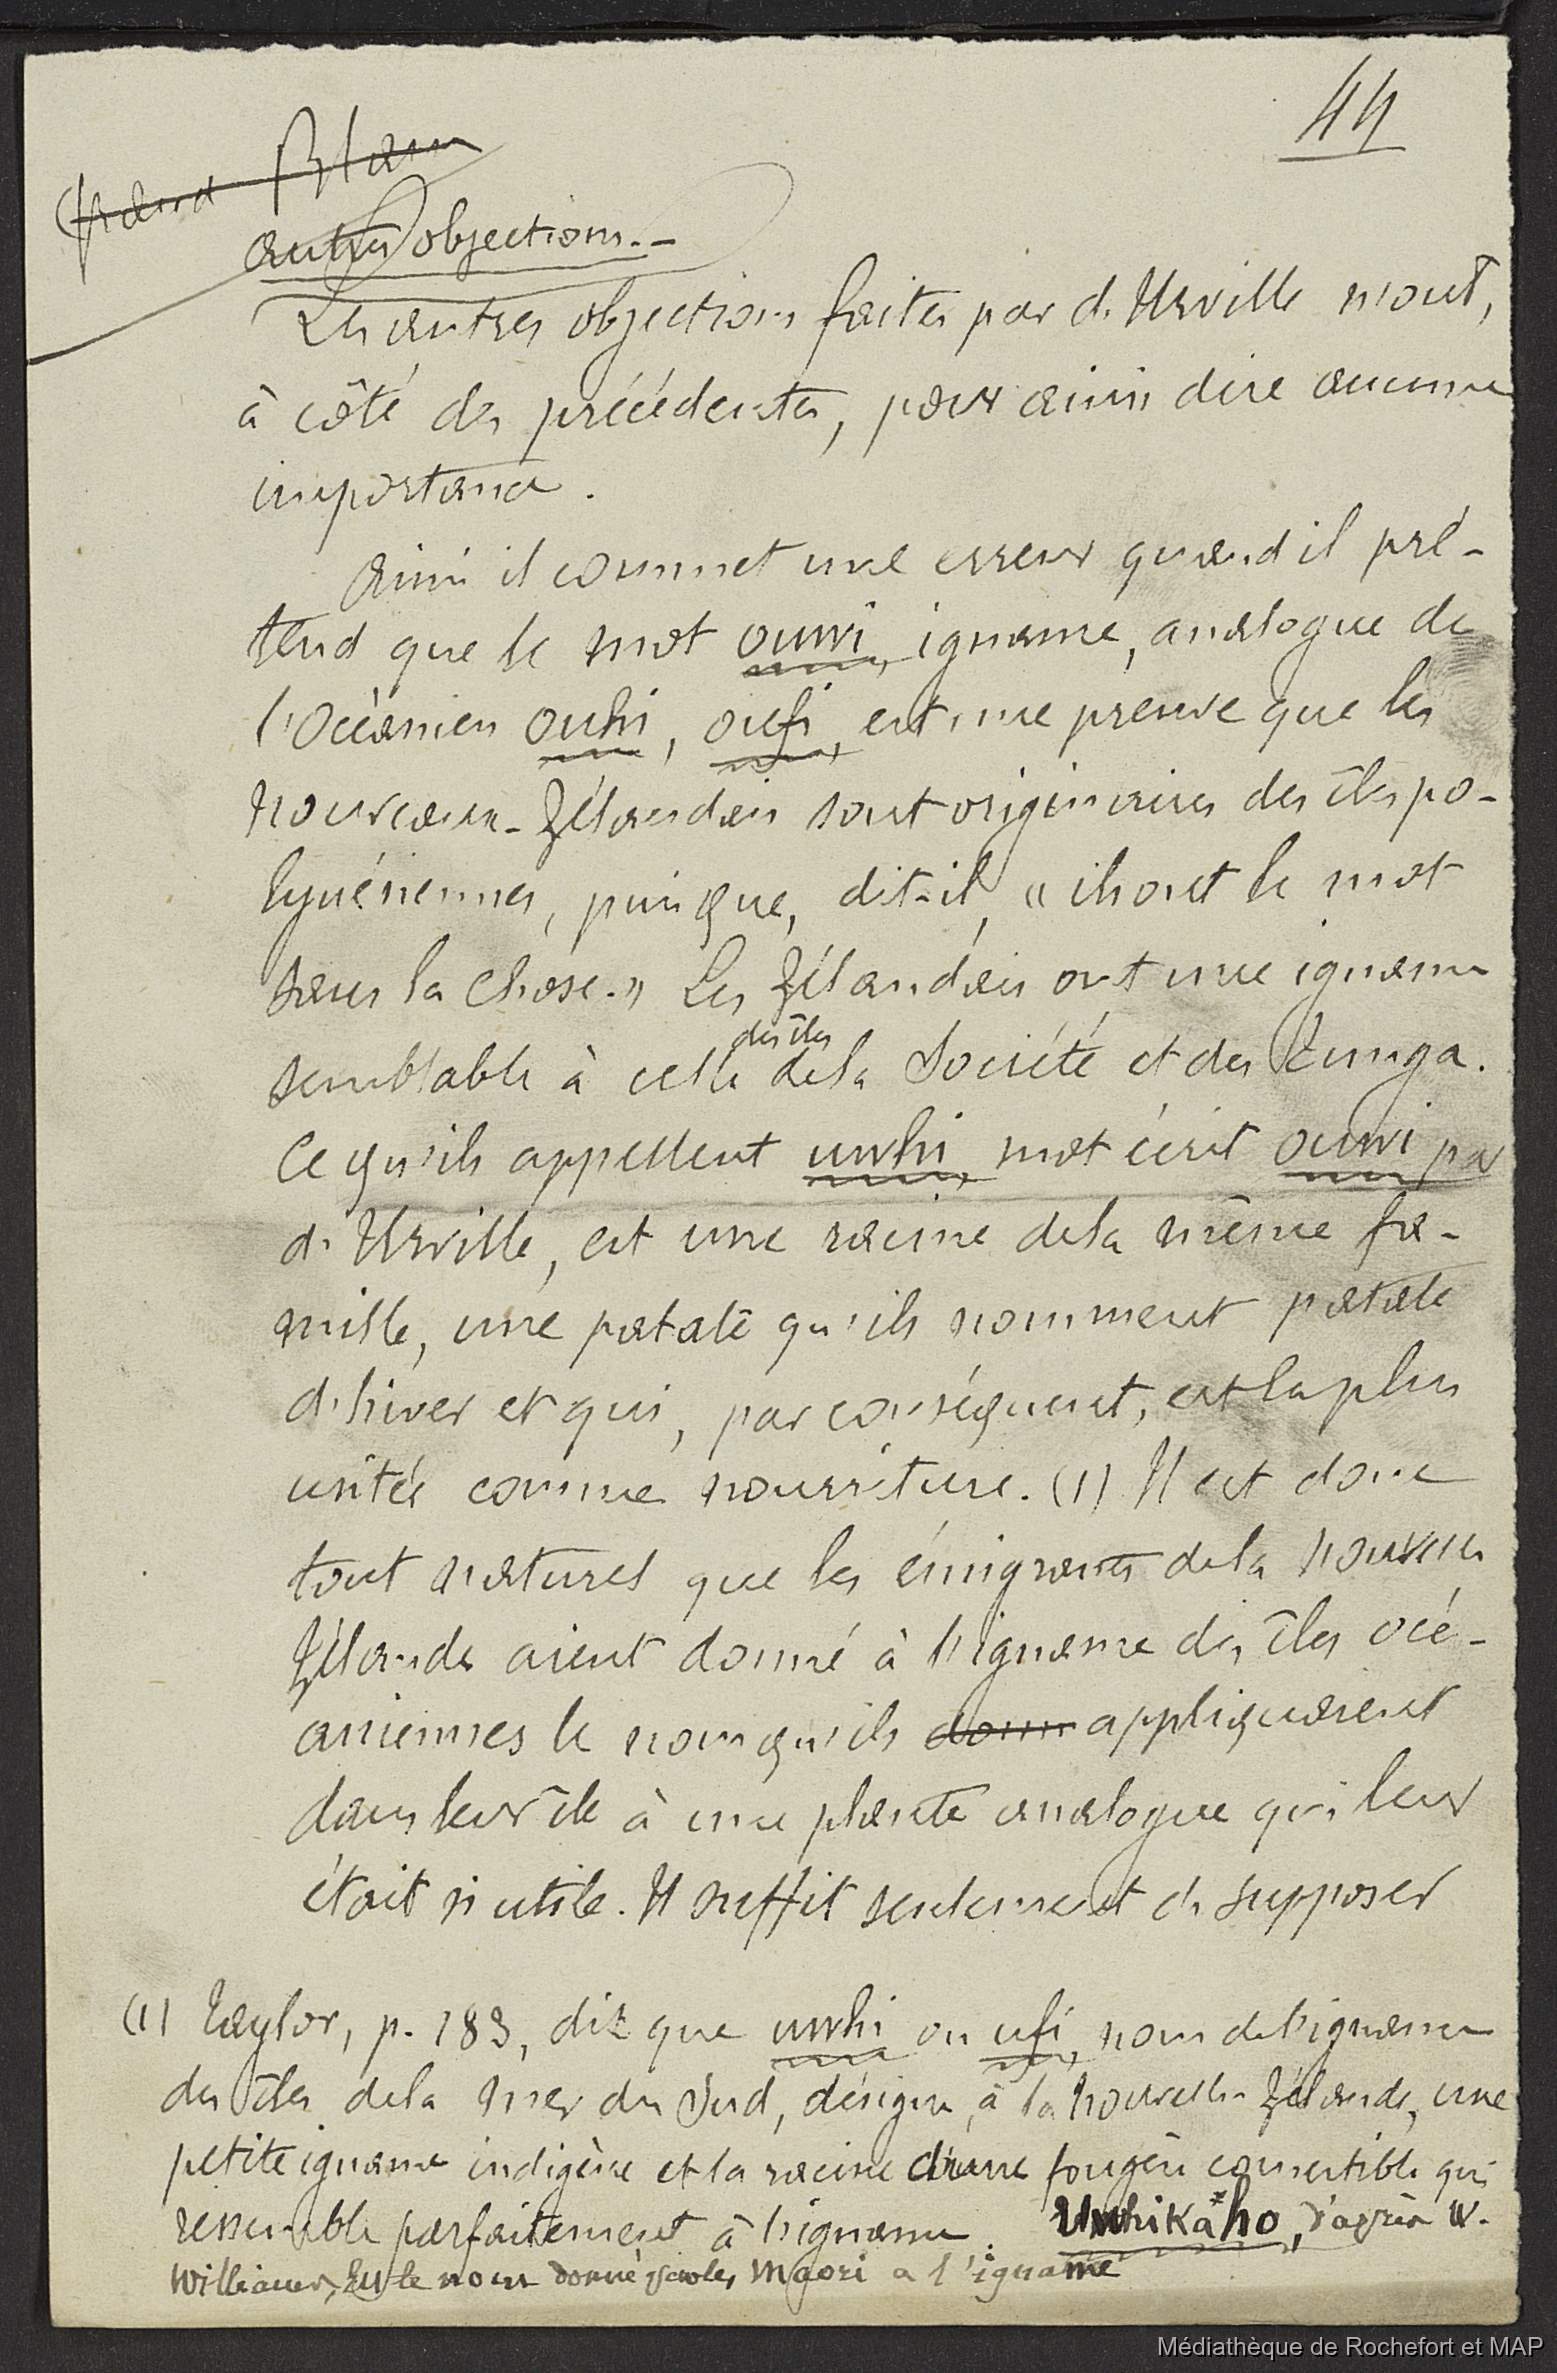 44
autres objections.-
Les autres objections faites par d'Urville n'ont,
à côté des précédentes, pour ainsi dire aucune
importance.
Ainsi il commet une erreur quand il pré-
tend que le mot ouwi, igname, analogue de
l'Océanien ouhi, oufi, est une preuve que les
Nouveaux-Zélandais sont originaires des îles po-
lynésiennes, puisque, dit-il, « ils ont le mot
sans la chose. » Les Zélandais ont une igname
des îles
semblable à celle dela Société et des Tunga.
Ce qu'ils appellent uwhi, mot écrit ouwi par
d'Urville, est une racine dela même fa-
mille, une patate qu'ils nomment patate
d'hiver et qui, par conséquent, est la plus
usitée comme nourriture. (1) Il est donc
tout naturel que les émigrants dela Nouvelle
Zélande aient donné à l'igname des îles océ-
aniennes le nom qu'ils donn appliquaient
dans leur île à une plante analogue qui leur
était si utile. Il suffit seulement de supposer
(1) Taylor, p. 183, dit que uwhi ou ufi, nom de l'igname
des îles dela mer du Sud, désigne, à la Nouvelle Zélande, une
petite igname indigène et la racine d'une fougère comestible qui
ressemble parfaitement à l'igname. Uwhikaho, d'après W.
Williams, est le nom donné par les Maori a l'igname
Médiathèque de Rochefort et MAP